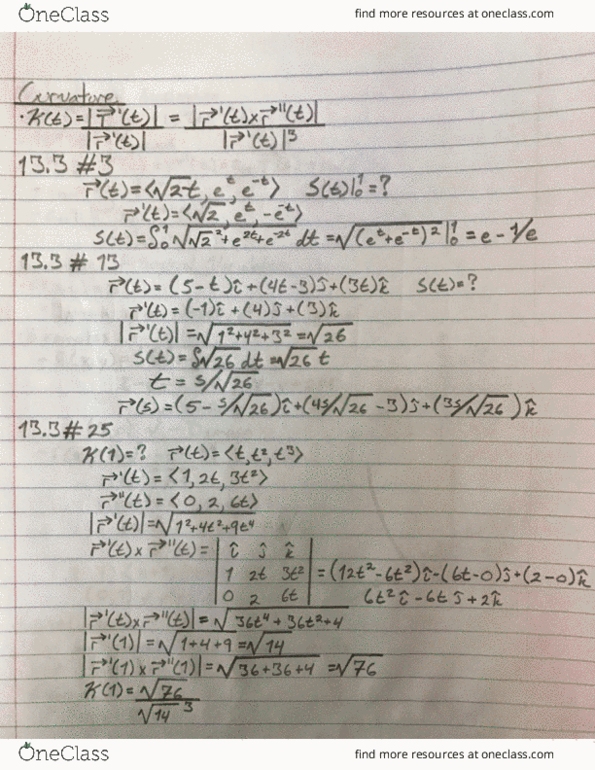 OneClass find more resources at oneclass.com
Curvature
·K(t)=|T⃗'(t)|/|r⃗'(t)| = |r⃗'(t)×r⃗''(t)|/|r⃗'(t)|³
13.3 #3
r⃗(t)=⟨√2t, eᵗ, e⁻ᵗ⟩ S(t)|₀¹=?
r⃗'(t)=⟨√2, eᵗ, -e⁻ᵗ⟩
S(t)=∫₀¹√(√2²+e²ᵗ+e⁻²ᵗ) dt=√((eᵗ+e⁻ᵗ)²)|₀¹=e-1/e
13.3 # 13
r⃗(t)=(5-t)î+(4t-3)ĵ+(3t)k̂ S(t)=?
r⃗'(t)=(-1)î+(4)ĵ+(3)k̂
|r⃗'(t)|=√(1²+4²+3²)=√26
S(t)=∫√26 dt=√26 t
t = s/√26
r⃗(s)=(5-s/√26)î+(4s/√26-3)ĵ+(3s/√26)k̂
13.3# 25
K(1)=? r⃗(t)=⟨t,t²,t³⟩
r⃗'(t)=⟨1,2t,3t²⟩
r⃗''(t)=⟨0,2,6t⟩
|r⃗'(t)|=√(1²+4t²+9t⁴)
r⃗'(t)×r⃗''(t)= | î ĵ k̂ |
| 1 2t 3t² | =(12t²-6t²)î-(6t-0)ĵ+(2-0)k̂
| 0 2 6t | 6t²î-6tĵ+2k̂
|r⃗'(t)×r⃗''(t)|=√(36t⁴+36t²+4)
|r⃗'(1)|=√(1+4+9)=√14
|r⃗'(1)×r⃗''(1)|=√(36+36+4)=√76
K(1)=√76/√14³
OneClass find more resources at oneclass.com